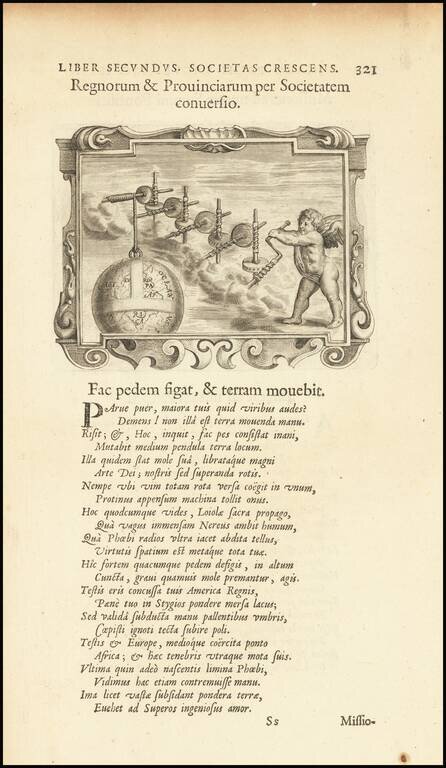 LIBER SECVNDVS. SOCIETAS CRESCENS. 321
Regnorum & Prouinciarum per Societatem
conuersio.
Fac pedem figat, & terram mouebit.
PArue puer, maiora tuis quid viribus audes?
Demens! non illâ est terra mouenda manu.
Risit; &, Hoc, inquit, fac pes consistat inani,
Mutabit medium pendula terra locum.
Illa quidem stat mole suâ, librataque magni
Arte Dei; nostris sed superanda rotis.
Nempe vbi vim totam rota versa coëgit in vnum,
Protinus appensum machina tollit onus.
Hoc quodcumque vides, Loiolæ sacra propago,
Quà vagus immensam Nereus ambit humum,
Quà Phœbi radios vltra iacet abdita tellus,
Virtutis spatium est metaque tota tuæ.
Hîc fortem quacumque pedem defigis, in altum
Cuncta, graui quamuis mole premantur, agis.
Testis eris concussa tuis America Regnis,
Pænè tuo in Stygios pondere mersa lacus;
Sed validâ subducta manu pallentibus vmbris,
Cœpisti ignoti tecta subire poli.
Testis & Europe, medioque coërcita ponto
Africa; & hæc tenebris vtraque mota suis.
Vltima quin adeò nascentis limina Phœbi,
Vidimus hac etiam contremuisse manu.
Ima licet vastæ subsidant pondera terræ,
Euehet ad Superos ingeniosus amor.
Ss Missio-